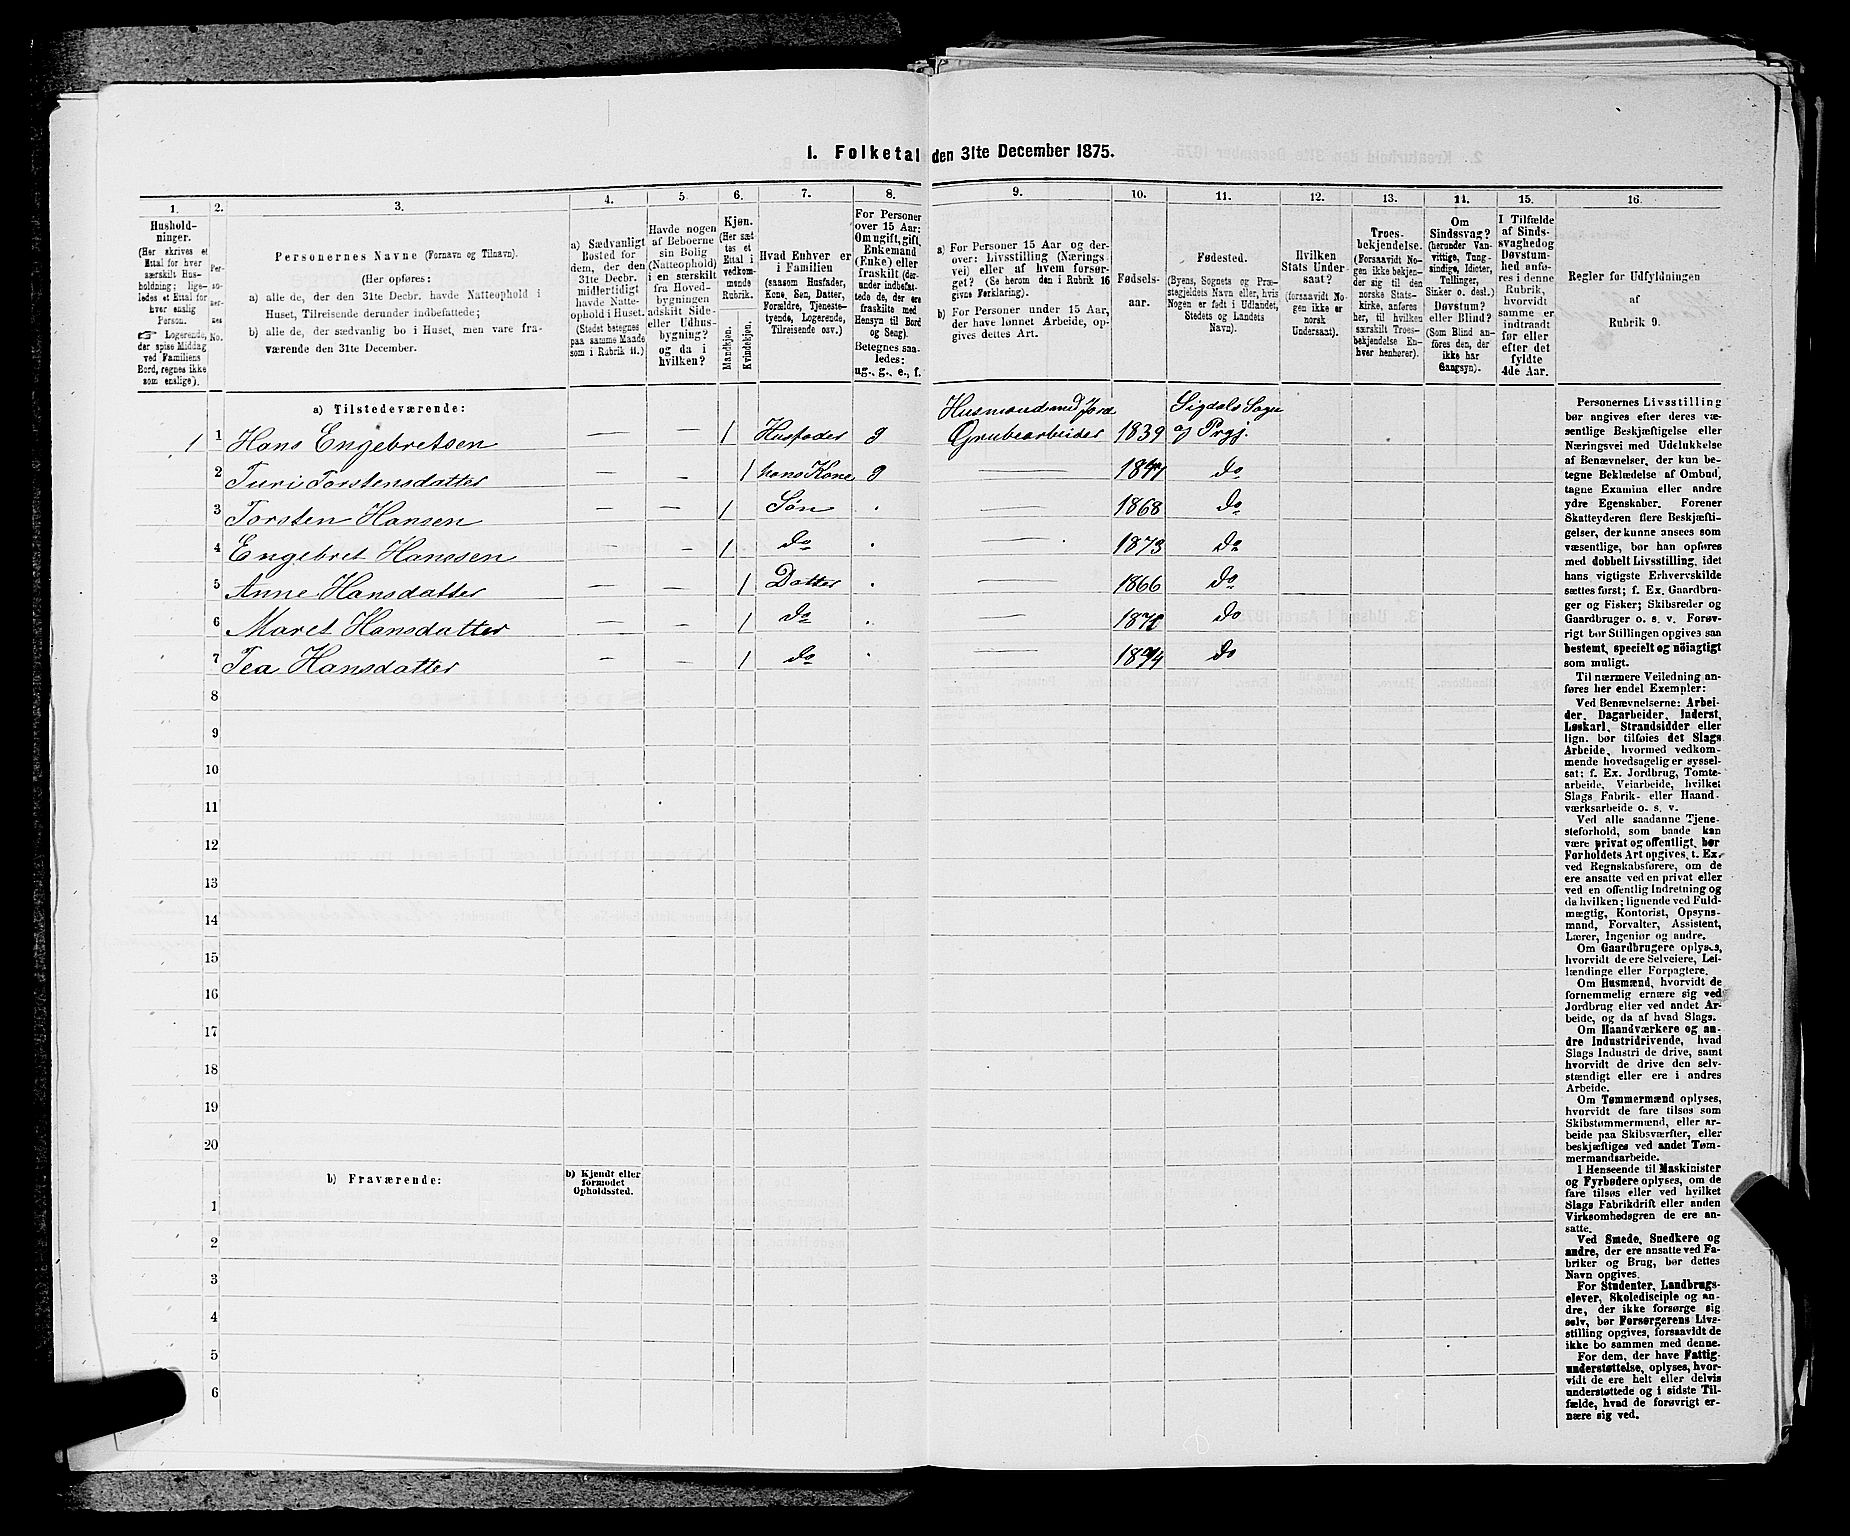 1. Folketal den 31te December 1875.
1. 2. 3. 4. 5. 6. 7. 8. 9. 10. 11. 12. 13. 14. 15. 16.
Hushold-
ninger.
(Her skrives et
Ettal for hver
særskilt Hus-
holdning; lige-
ledes et Ettal for
hver enslig
Person.
☞ Logerende,
der spise Middag
ved Familiens
Bord, regnes ikke
som enslige).
Per-
so-
ner-
nes
No.
Personernes Navne (Fornavn og Tilnavn).
(Her opføres:
a) alle de, der den 31te Decbr. havde Natteophold i
Huset, Tilreisende derunder indbefattede;
b) alle de, der sædvanlig bo i Huset, men vare fra-
værende den 31te December.
a) Sædvanligt
Bosted for
dem, der den
31te Decbr.
midlertidigt
havde Natte-
ophold i Huset.
(Stedet betegnes
paa samme Maade
som i Rubrik 11.)
Havde nogen
af Beboerne
sin Bolig
(Natteophold)
i en særskilt
fra Hoved-
bygningen
adskilt Side-
eller Udhus-
bygning?
og da i
hvilken?
Kjøn.
(Her sæt-
tes et
Ettal i
vedkom-
mende
Rubrik.
Mandkjøn.
Kvindekjøn.
Hvad Enhver er
i Familien
(saasom Husfader,
Kone, Søn, Datter,
Forældre, Tjeneste-
tyende, Logerende,
Tilreisende osv.)
For Personer
over 15 Aar:
Om ugift, gift,
Enkemand
(Enke) eller
fraskilt (der-
under indbefat-
tede de, der ere
fraskilte med
Hensyn til Bord
og Seng).
Betegnes saa-
ledes:
ug., g., e., f.
a) For Personer 15 Aar og der-
over: Livsstilling (Nærings-
vei) eller af hvem forsør-
get? (Se herom den i Rubrik 16
givne Førklaring).
b) For Personer under 15 Aar,
der have lønnet Arbeide, op-
gives dettes Art.
Fødsels-
aar.
Fødested.
(Byens, Sognets og Præ-
stegjeldets Navn eller, hvis
Nogen er født i Udlandet,
Stedets og Landets
Navn).
Hvilken
Stats Under-
saat?
(forsaavidt No-
gen ikke er
norsk
Undersaat).
Troes-
bekjendelse.
(Forsaavidt No-
gen ikke bekjen-
der sig til den
norske Stats-
kirke, anføres
her, til hvilken
særskilt Troes-
bekjendelse En-
hver henhører).
Om
Sindssvag?
(herunder Van-
vittige, Tung-
sindige, Idioter,
Tullinger,
Sinker o. desl.)
Døvstum?
eller Blind?
(Som Blind an-
føres den, der
ikke har
Gangsyn).
I Tilfælde
af Sinds-
svaghed og
Døvstum-
hed anfø-
res i denne
Rubrik,
hvorvidt
samme er
indtraadt
før eller
efter det
fyldte
4de Aar.
Regler for Udfyldningen
af
Rubrik 9.
a) Tilstedeværende:
Husmand med Jord Sigdals Sogn
1 1 Hans Engebretsen — — 1 Husfader g Grubearbeider 1839 og Prgj.
2 Turi Torstensdatter — — 1 hans Kone g — 1841 do
3 Torsten Hansen — — 1 Søn . — 1868 do
4 Engebret Hanssen — — 1 do . — 1873 do
5 Anne Hansdatter — — 1 Datter . — 1866 do
6 Maret Hansdatter — — 1 do . — do
7 Tea Hansdatter — — 1 do . — do
8
9
10
11
12
13
14
15
16
17
18
19
20
b) Fraværende:
b) Kjendt eller
formodet
Opholdssted.
1
2
3
4
5
6
Personernes Livsstilling
bør angives efter deres væ-
sentlige Beskjæftigelse eller
Næringsvei med Udelukkelse
af Benævnelser, der kun be-
tegne Beklædelse af Ombud,
tagne Examina eller andre
ydre Egenskaber. Forener
Skatteyderen flere Beskjæfti-
gelser, der kunne ansees som
væsentlige, bør han opføres
med dobbelt Livsstilling, idet
hans vigtigste Erhvervskilde
sættes først; f. Ex. Gaardbru-
ger og Fisker; Skibsreder og
Gaardbruger o. s. v. Forøv-
rigt bør Stillingen opgives saa
bestemt, specielt og nöiagtigt
som muligt.
Til nærmere Veiledning an-
føres her endel Exempler:
Ved Benævnelserne: Arbei-
der, Dagarbeider, Inderst,
Løskarl, Strandsidder eller
lign. bør tilføies det Slags
Arbeide, hvormed vedkom-
mende hovedsagelig er syssel-
sat; f. Ex. Jordbrug, Tomte-
arbeide, Veiarbeide, hvilket
Slags Fabrik- eller Haand-
værksarbeide o. s. v.
Ved alle saadanne Tjene-
steforhold, som baade kan
være privat og offentligt, bør
Forholdets Art opgives, t. Ex.
ved Regnskabsførere, om de
ere ansatte ved en privat eller
ved en offentlig Indretning og
da hvilken; lignende ved Fuld-
mægtig, Kontorist, Opsyns-
mand, Forvalter, Assistent,
Lærer, Ingeniør og andre.
Om Gaardbrugere oplyses,
hvorvidt de ere Selveiere, Lei-
lændinge eller Forpagtere.
Om Husmænd, hvorvidt de
fornemmelig ernære sig ved
Jordbrug eller ved andet Ar-
beide, og da af hvad Slags.
Om Haandværkere og an-
dre Industridrivende, hvad
Slags Industri de drive, samt
hvorvidt de drive den selv-
stændigt eller ere i andres
Arbeide.
Om Tømmermænd oplyses,
hvorvidt de fare tilsøs som
Skibstømmermænd, eller ar-
beide paa Skibsværfter, eller
beskjæftiges ved andet Tøm-
mermandsarbeide.
I Henseende til Maskinister
og Fyrbødere oplyses, om de
fare tilsøs eller ved hvilket
Slags Fabrikdrift eller anden
Virksomhedsgren de ere an-
satte.
Ved Smede, Snedkere og
andre, der ere ansatte ved Fa-
briker og Brug, bør dettes
Navn opgives.
For Studenter, Landbrugs-
elever, Skoledisciple og an-
dre, der ikke forsørge sig
selv, bør Forsørgerens Livs-
stilling opgives, forsaavidt de
ikke bo sammen med denne.
For dem, der have Fattig-
understøttelse, oplyses, hvor-
vidt de ere helt eller delvis
understøttede og i sidste Til-
fælde, hvad de forøvrigt er-
nære sig ved.